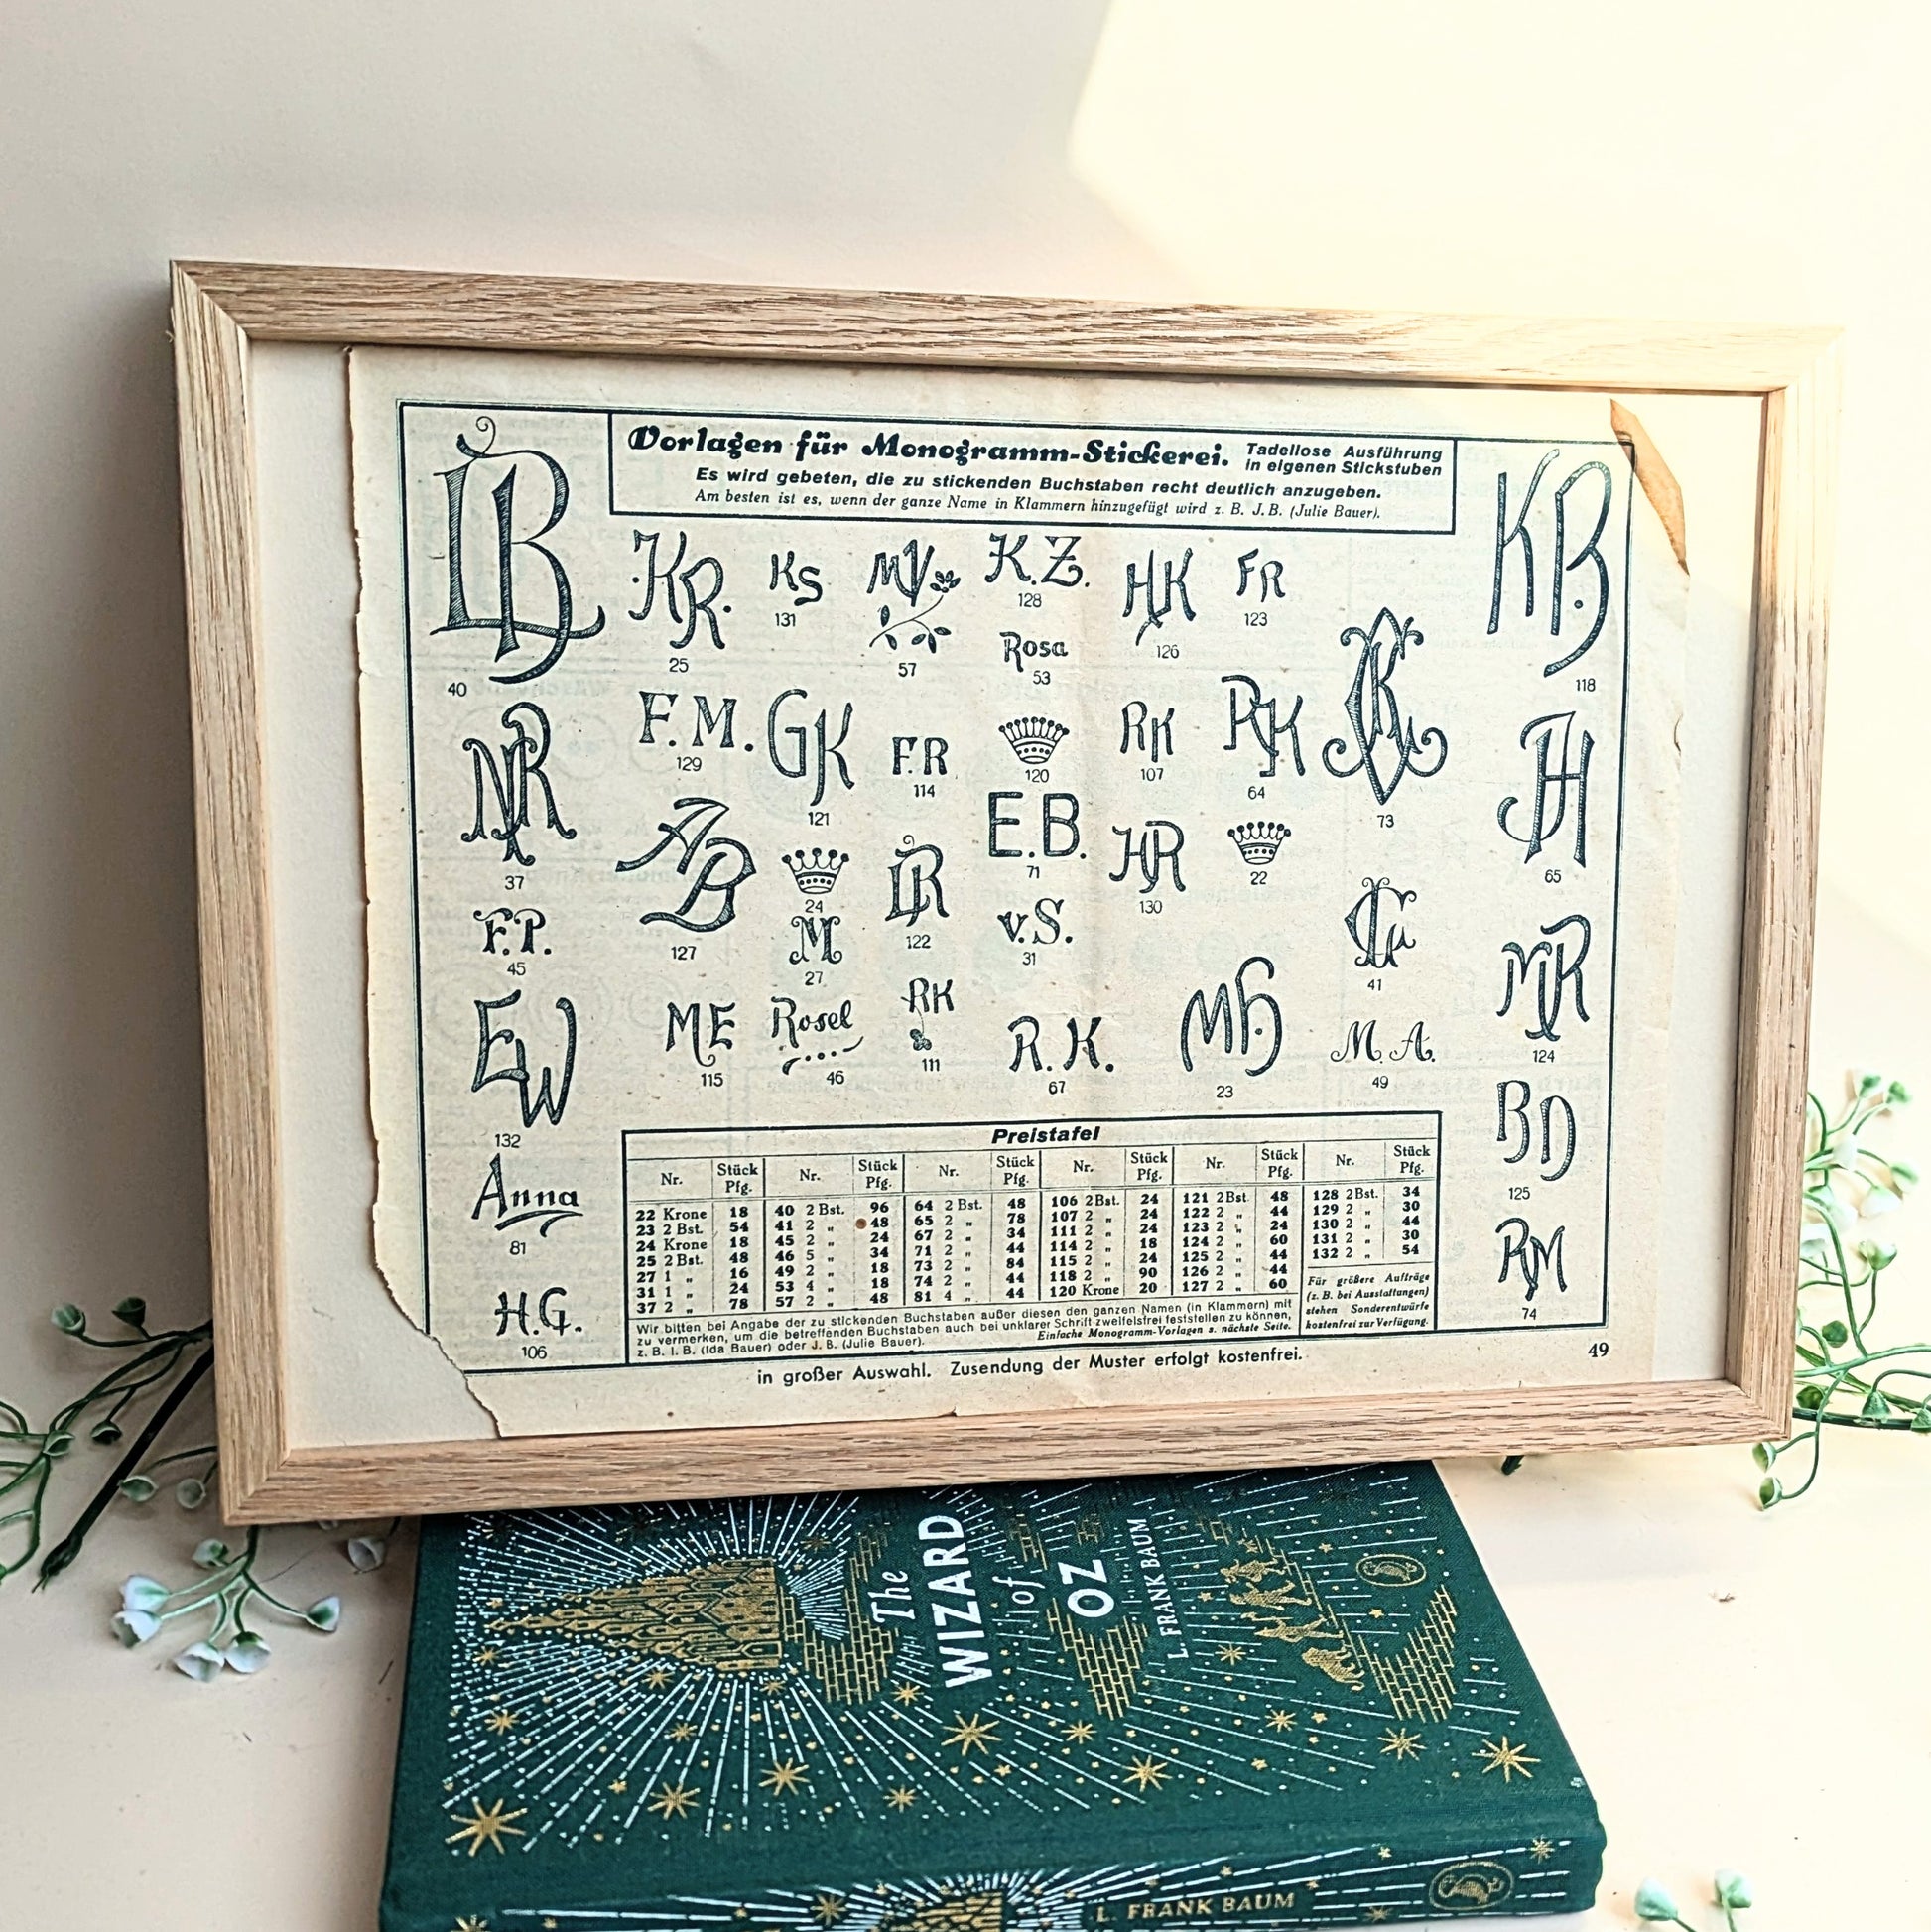 Vorlagen für Monogramm-Stickerei. Tadellose Ausführung
in eigenen Stickstuben
Es wird gebeten, die zu stickenden Buchstaben recht deutlich anzugeben.
Am besten ist es, wenn der ganze Name in Klammern hinzugefügt wird z. B. J. B. (Julie Bauer).
LB
40
KR.
25
KS
131
MV
57
K.Z.
128
Rosa
53
HK
126
FR
123
KB
118
NR
37
F.M.
129
GK
121
F.R
114
120
RK
107
RK
64
73
JH
65
AB
127
24
M
27
122
E.B.
71
v.S.
31
HR
130
22
41
F.P.
45
MR
124
EW
132
ME
115
Rosel
46
RK
111
R.K.
67
MH
23
M.A.
49
BD
125
Anna
81
H.G.
106
RM
74
Preistafel
Nr. Stück Pfg. Nr. Stück Pfg. Nr. Stück Pfg. Nr. Stück Pfg. Nr. Stück Pfg. Nr. Stück Pfg.
22 Krone 18 40 2 Bst. 96 64 2 Bst. 48 106 2Bst. 24 121 2Bst. 48 128 2Bst. 34
23 2 Bst. 54 41 2 „ 48 65 2 „ 78 107 2 „ 24 122 2 „ 44 129 2 „ 30
24 Krone 18 45 2 „ 24 67 2 „ 34 111 2 „ 24 123 2 „ 24 130 2 „ 44
25 2 Bst. 48 46 5 „ 34 71 2 „ 44 114 2 „ 18 124 2 „ 60 131 2 „ 30
27 1 „ 16 49 2 „ 18 73 2 „ 84 115 2 „ 24 125 2 „ 44 132 2 „ 54
31 1 „ 24 53 4 „ 18 74 2 „ 44 118 2 „ 90 126 2 „ 44
37 2 „ 78 57 2 „ 48 81 4 „ 44 120 Krone 20 127 2 „ 60
Für größere Aufträge
(z. B. bei Ausstattungen)
stehen Sonderentwürfe
kostenfrei zur Verfügung.
Wir bitten bei Angabe der zu stickenden Buchstaben außer diesen den ganzen Namen (in Klammern) mit
zu vermerken, um die betreffenden Buchstaben auch bei unklarer Schrift zweifelsfrei feststellen zu können,
z. B. I. B. (Ida Bauer) oder J. B. (Julie Bauer). Einfache Monogramm-Vorlagen s. nächste Seite.
49
in großer Auswahl. Zusendung der Muster erfolgt kostenfrei.
The
WIZARD
of
OZ
L. FRANK BAUM
L. FRANK BAUM